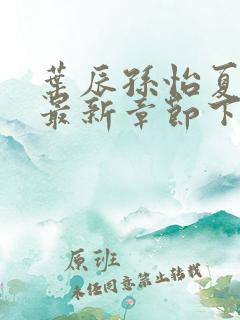 葉辰孫怡夏
最新章節下
原班
未经同意禁止转载